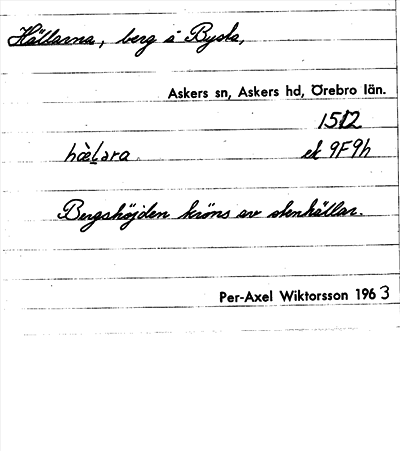 Hällarna, berg å Bysta,
Askers sn, Askers hd, Örebro län.
1512
hæ̀l̠ara ek 9F9h
Bergshöjden kröns av stenhällar.
Per-Axel Wiktorsson 1963